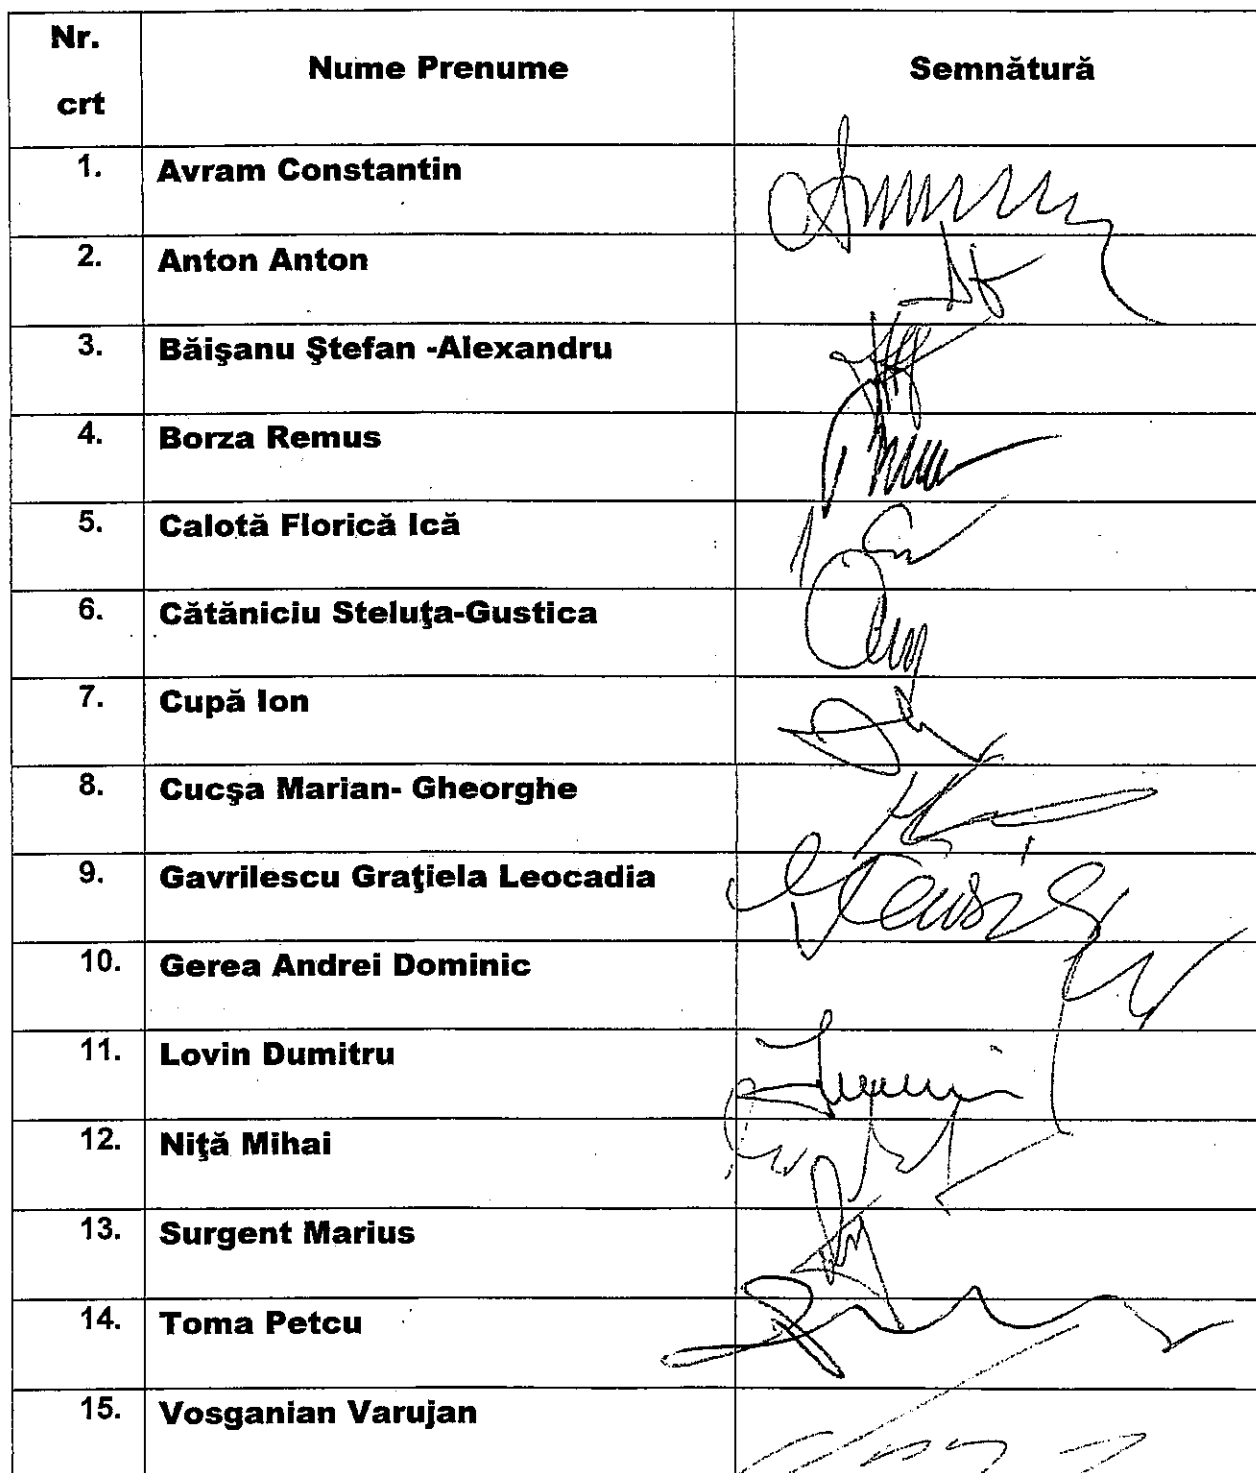 Nr. crt Nume Prenume Semnătură
1. Avram Constantin
2. Anton Anton
3. Băişanu Ştefan -Alexandru
4. Borza Remus
5. Calotă Florică Ică
6. Cătăniciu Steluţa-Gustica
7. Cupă Ion
8. Cucşa Marian- Gheorghe
9. Gavrilescu Graţiela Leocadia
10. Gerea Andrei Dominic
11. Lovin Dumitru
12. Niţă Mihai
13. Surgent Marius
14. Toma Petcu
15. Vosganian Varujan